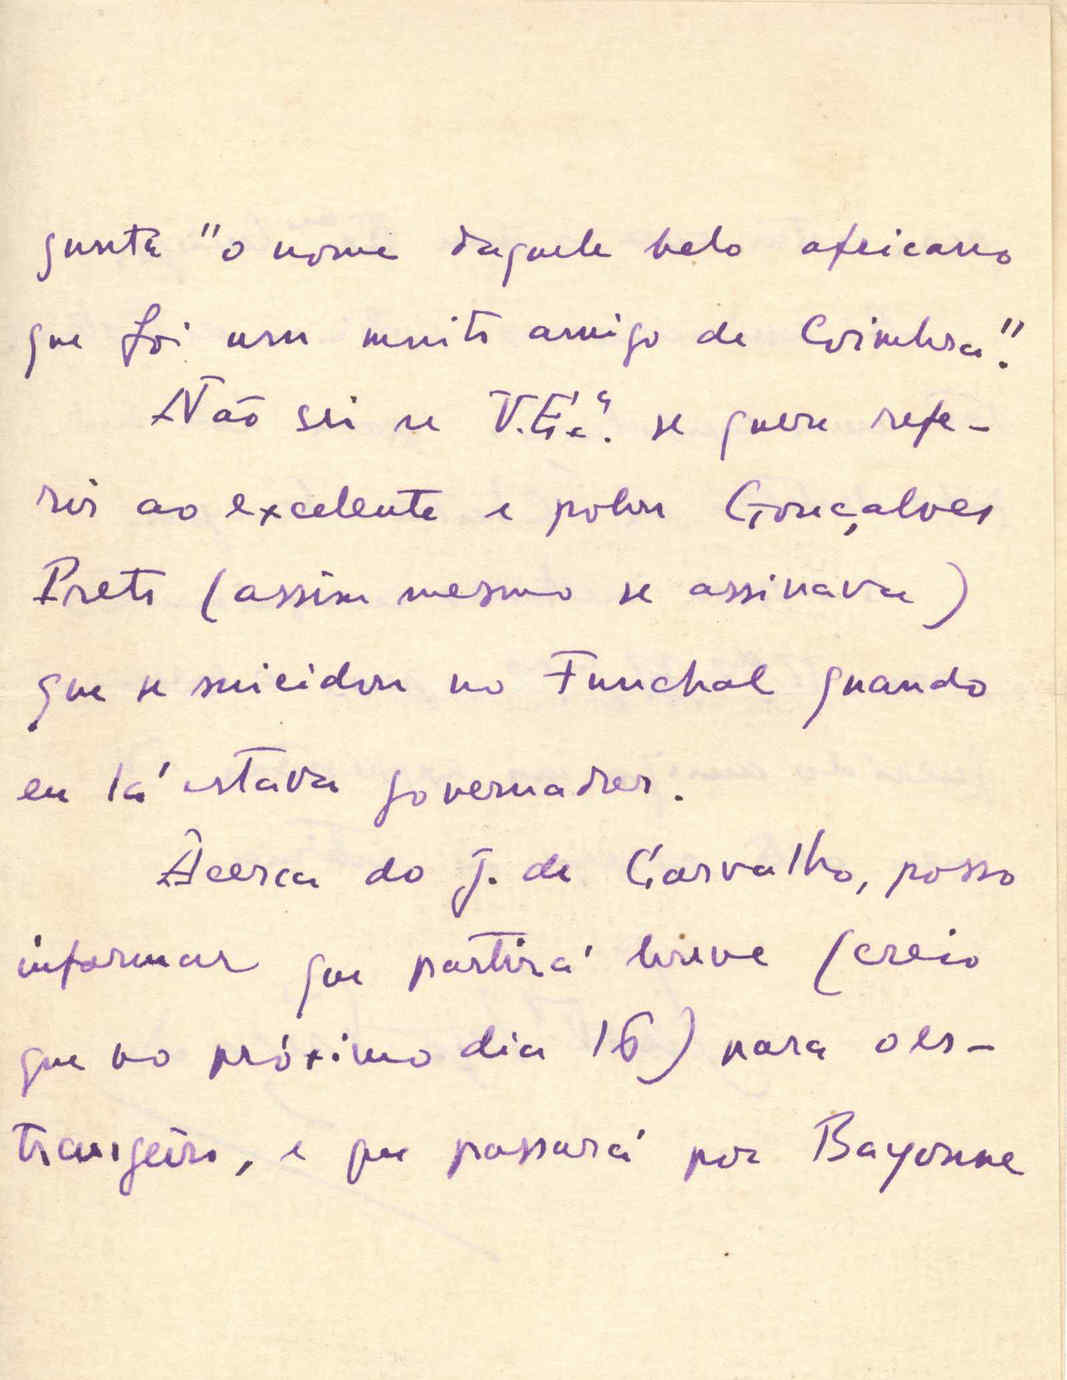 gunta "o nome daquele belo africano
que foi um muito amigo de Coimbra".
Não sei se V. Ex.ª se quere refe-
rir ao excelente e pobre Gonçalves
Preto (assim mesmo se assinava)
que se suicidou no Funchal quando
eu lá estava governador.
Àcerca do J. de Carvalho, posso
informar que partirá breve (creio
que no próximo dia 16) para o es-
trangeiro, e que passará por Bayonne